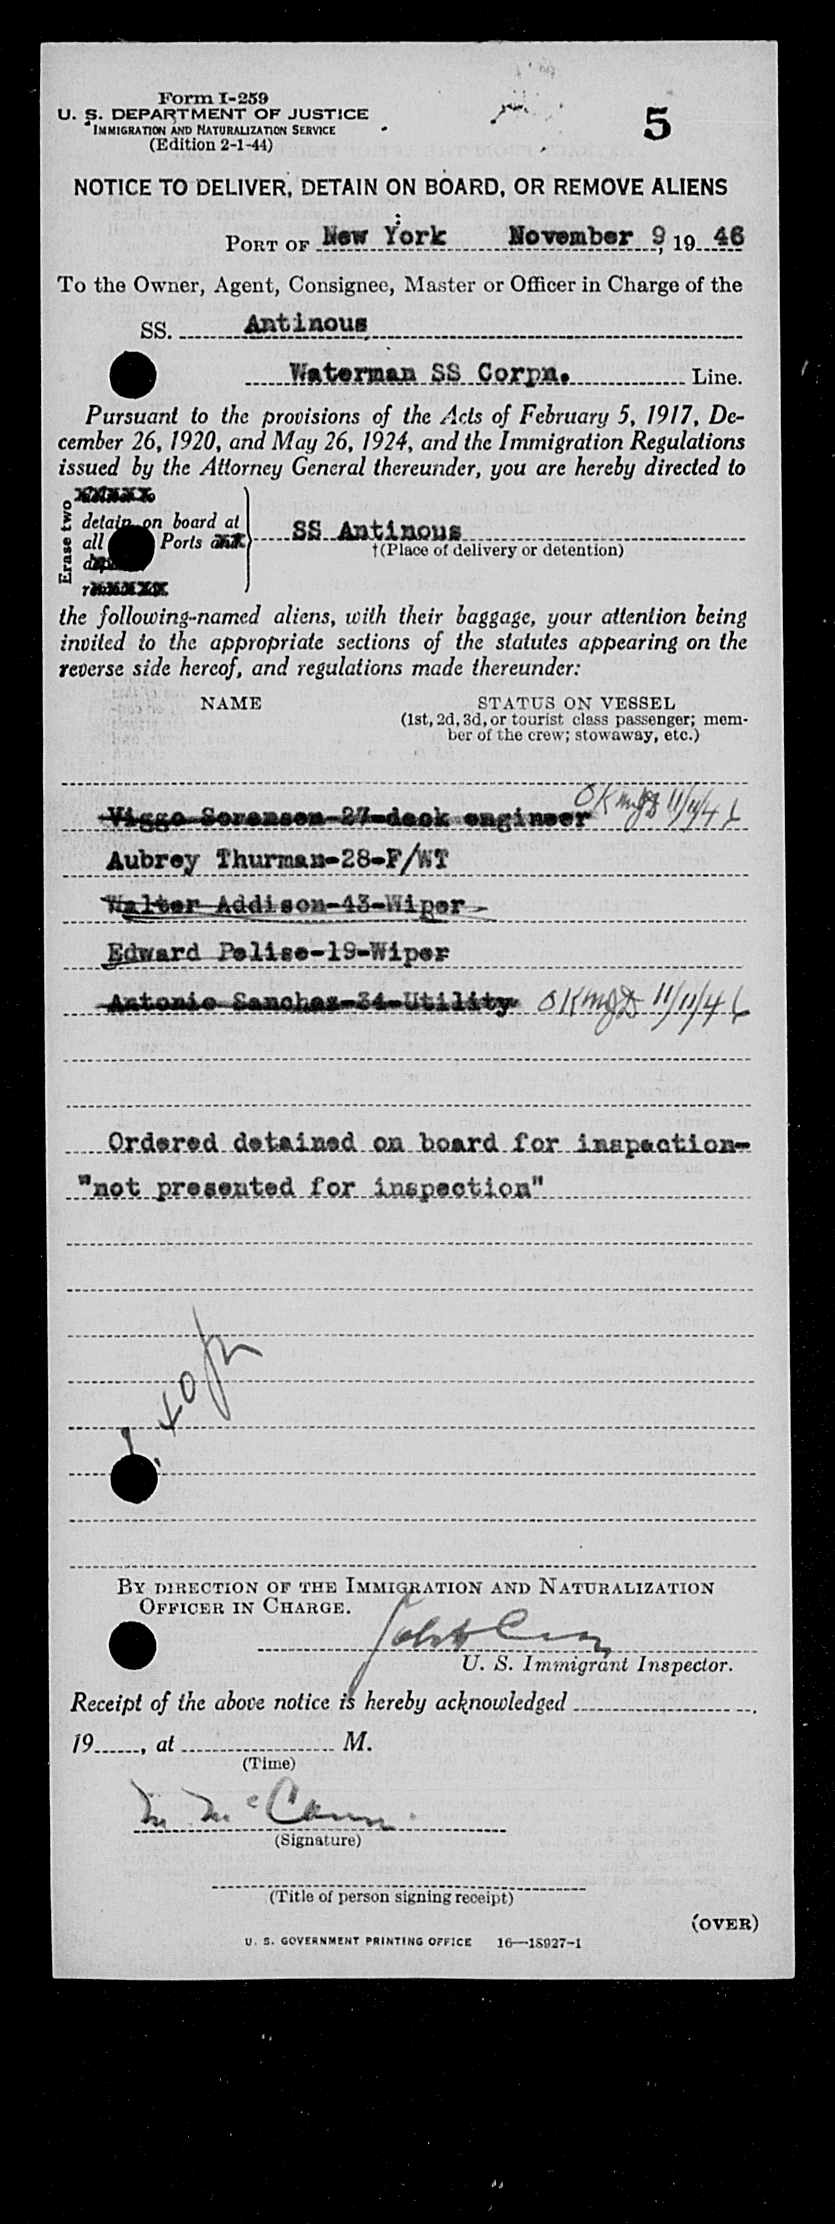 Form I-259
U. S. DEPARTMENT OF JUSTICE
IMMIGRATION AND NATURALIZATION SERVICE
(Edition 2-1-44)
5
NOTICE TO DELIVER, DETAIN ON BOARD, OR REMOVE ALIENS
PORT OF New York November 9, 19 46
To the Owner, Agent, Consignee, Master or Officer in Charge of the
SS. Antinous
Waterman SS Corpn. Line.
Pursuant to the provisions of the Acts of February 5, 1917, De-
cember 26, 1920, and May 26, 1924, and the Immigration Regulations
issued by the Attorney General thereunder, you are hereby directed to
Erase two
detain on board at
all Ports
SS Antinous
†(Place of delivery or detention)
the following-named aliens, with their baggage, your attention being
invited to the appropriate sections of the statutes appearing on the
reverse side hereof, and regulations made thereunder:
NAME
STATUS ON VESSEL
(1st, 2d, 3d, or tourist class passenger; mem-
ber of the crew; stowaway, etc.)
Viggo Sorensen-27-deck engineer OK 11/11/46
Aubrey Thurman-28-F/WT
Walter Addison-43-Wiper
Edward Pelise-19-Wiper
Antonio Sanchez-34-Utility OK 11/11/46
Ordered detained on board for inspection-
"not presented for inspection"
BY DIRECTION OF THE IMMIGRATION AND NATURALIZATION
OFFICER IN CHARGE.
U. S. Immigrant Inspector.
Receipt of the above notice is hereby acknowledged
19 , at M.
(Time)
M McCann
(Signature)
(Title of person signing receipt)
(OVER)
U. S. GOVERNMENT PRINTING OFFICE 16—18927-1